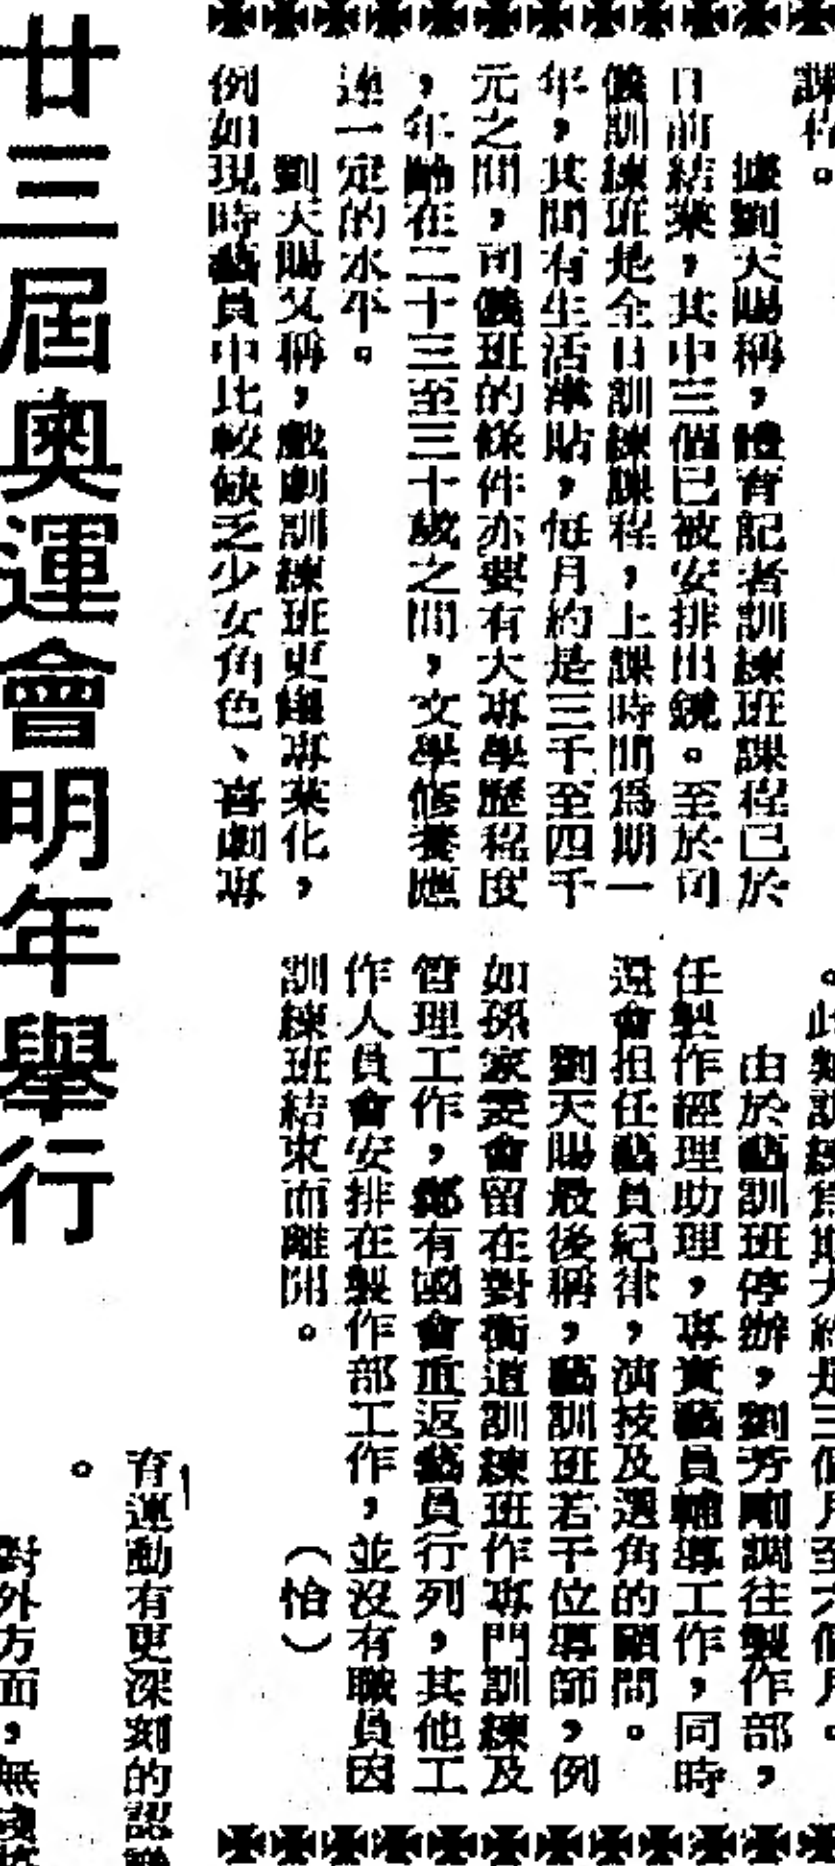 課程。
據劉天賜稱，體育記者訓練班課程已於
日前結業，其中三個已被安排出鏡。至於司
儀訓練班是全日訓練課程，上課時間爲期一
年，其間有生活津貼，每月約是三千至四千
元之間，司儀班的條件亦要有大專學歷程度
，年齡在二十三至三十歲之間，文學修養應
達一定的水平。
劉天賜又稱，戲劇訓練班更趨專業化，
例如現時藝員中比較缺乏少女角色、喜劇專
。此類訓練爲期大約是三個月至六個月。
由於藝訓班停辦，劉芳剛調往製作部，
任製作經理助理，專責藝員輔導工作，同時
還會担任藝員紀律，演技及選角的顧問。
劉天賜最後稱，藝訓班若干位導師，例
如孫家雯會留在對衡道訓練班作專門訓練及
管理工作，鄭有國會重返藝員行列，其他工
作人員會安排在製作部工作，並沒有職員因
訓練班結束而離開。（怡）
廿三屆奧運會明年舉行
育運動有更深刻的認
。
對外方面，無綫